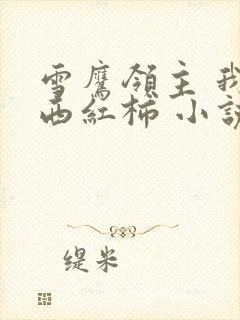 雪鷹領主 我
西紅柿 小說
缇米